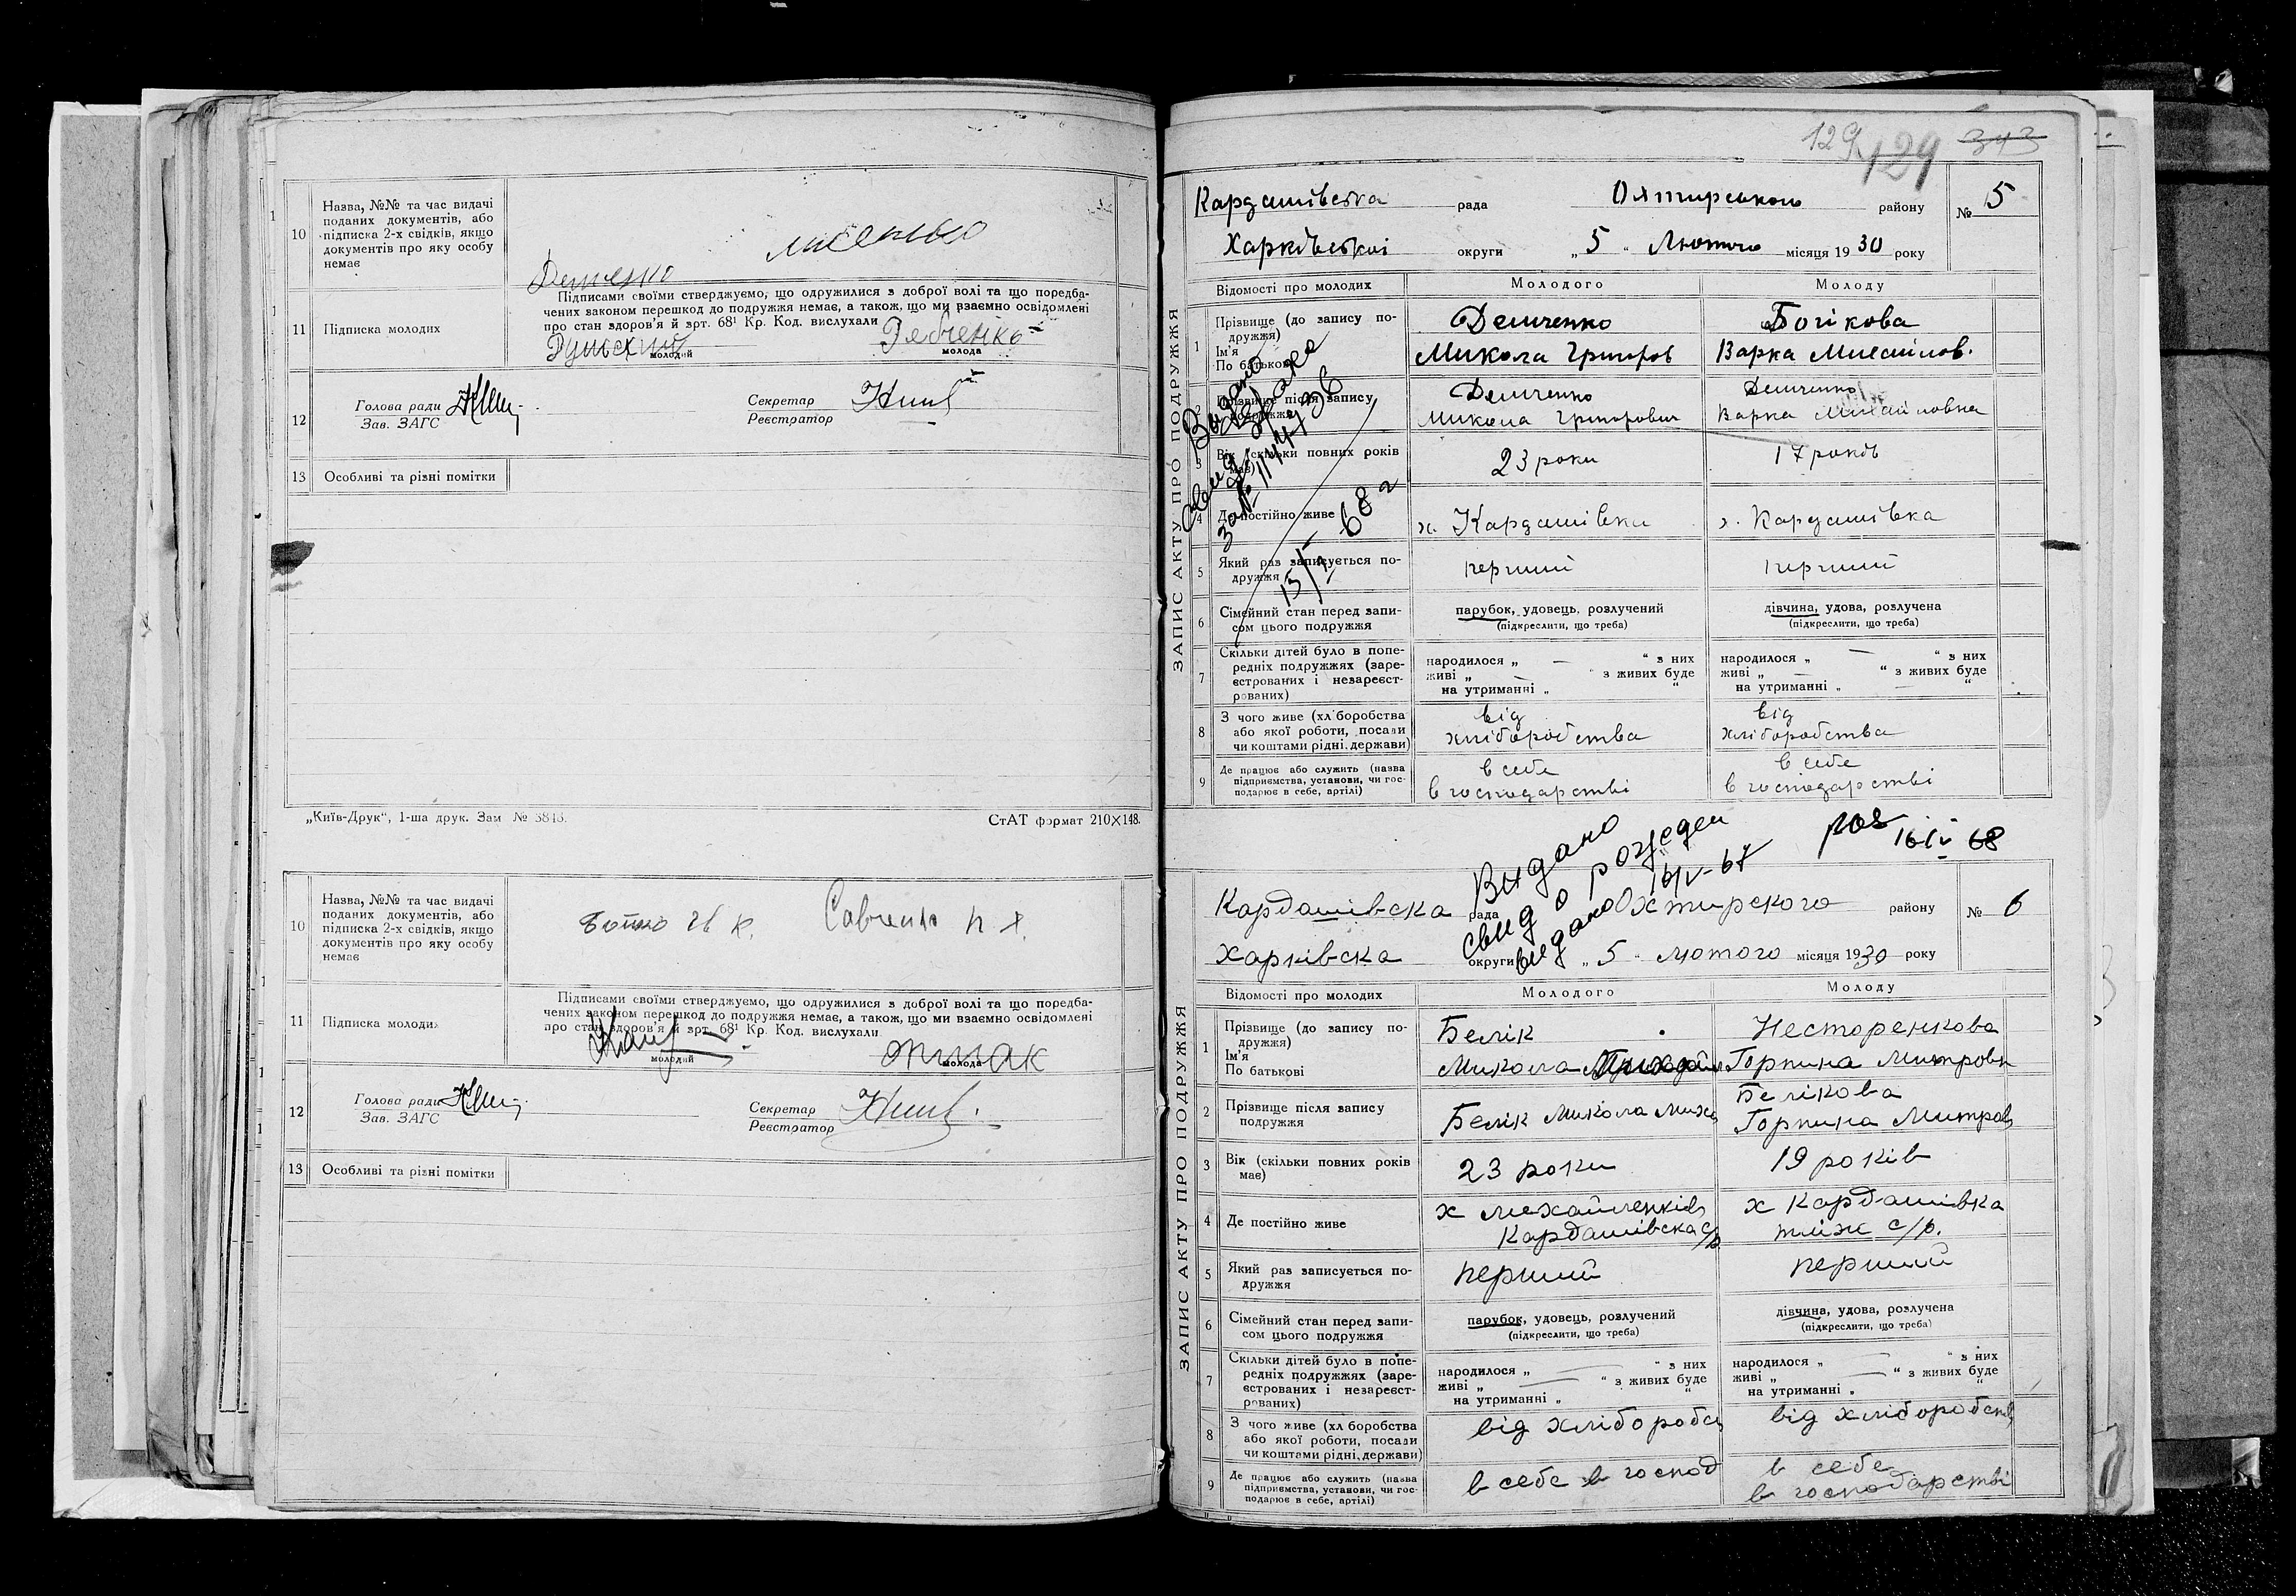 10
Назва, №№ та час видачі
поданих документів, або
підписка 2-х свідків, якщо
документів про яку особу
немає
11
Підписка молодих
Підписами своїми стверджуємо, що одружилися з доброї волі та що поредба-
чених законом перешкод до подружжя немає, а також, що ми взаємно освідомлені
про стан здоров'я й зрт. 68¹ Кр. Код. вислухали
молодий
молода
12
Голова ради
Зав. ЗАГС
Секретар
Реєстратор
13
Особливі та різні помітки
„Київ-Друк“, 1-ша друк. Зам №
СтАТ формат 210×148.
10
Назва, №№ та час видачі
поданих документів, або
підписка 2-х свідків, якщо
документів про яку особу
немає
Савченко
11
Підписка молодих
Підписами своїми стверджуємо, що одружилися з доброї волі та що поредба-
чених законом перешкод до подружжя немає, а також, що ми взаємно освідомлені
про стан здоров'я й зрт. 68¹ Кр. Код. вислухали
молодий
молода
12
Голова ради
Зав. ЗАГС
Секретар
Реєстратор
13
Особливі та різні помітки
129 129 343
ЗАПИС АКТУ ПРО ПОДРУЖЖЯ
Кардашівська рада Охтирського району № 5
Харківської округи „5“ Лютого місяця 1930 року
Відомості про молодих Молодого Молоду
1
Прізвище (до запису по-
дружжя)
Ім'я
По батькові
Демченко
Микола Григоров
Варка Михайлов.
2
Прізвище після запису
подружжя
Демченко
Микола Григорович
Демченко
Варка Михайловна
3
Вік (скільки повних років
має)
23 роки
17 років
4
Де постійно живе
х. Кардашівка
х. Кардашівка
5
Який раз записується по-
дружжя
перший
перший
6
Сімейний стан перед запи-
сом цього подружжя
парубок, удовець, розлучений
(підкреслити, що треба)
дівчина, удова, розлучена
(підкреслити, що треба)
7
Скільки дітей було в попе-
редніх подружжях (заре-
єстрованих і незареєст-
рованих)
народилося „ — “ з них
живі „ — “ з живих буде
на утриманні „ “
народилося „ — “ з них
живі „ — “ з живих буде
на утриманні „ — “
8
З чого живе (хліборобства
або якої роботи, посади
чи коштами рідні, держави)
від
хліборобства
від
хліборобства
9
Де працює або служить (назва
підприємства, установи, чи гос-
подарює в себе, артілі)
в себе
в господарстві
в себе
в господарстві
Видано
68
ЗАПИС АКТУ ПРО ПОДРУЖЖЯ
Кардашівска рада Охтирского району № 6
Харківска округи „5“ лютого місяця 1930 року
Відомості про молодих Молодого Молоду
1
Прізвище (до запису по-
дружжя)
Ім'я
По батькові
Белік
Микола
Несторенкова
Горпина Митровн
2
Прізвище після запису
подружжя
Белік Микола Миха
Белікова
Горпина Митров
3
Вік (скільки повних років
має)
23 роки
19 років
4
Де постійно живе
х Михайленків
Кардашівска с/р
х Кардашівка
тліж с/р.
5
Який раз записується по-
дружжя
перший
перший
6
Сімейний стан перед запи-
сом цього подружжя
парубок, удовець, розлучений
(підкреслити, що треба)
дівчина, удова, розлучена
(підкреслити, що треба)
7
Скільки дітей було в попе-
редніх подружжях (заре-
єстрованих і незареєст-
рованих)
народилося „ — “ з них
живі „ — “ з живих буде
на утриманні „ “
народилося „ — “ з них
живі „ — “ з живих буде
на утриманні „ “
8
З чого живе (хліборобства
або якої роботи, посади
чи коштами рідні, держави)
від хліборобс
від хліборобств
9
Де працює або служить (назва
підприємства, установи, чи гос-
подарює в себе, артілі)
в себе в господ
в себе
в господарстві